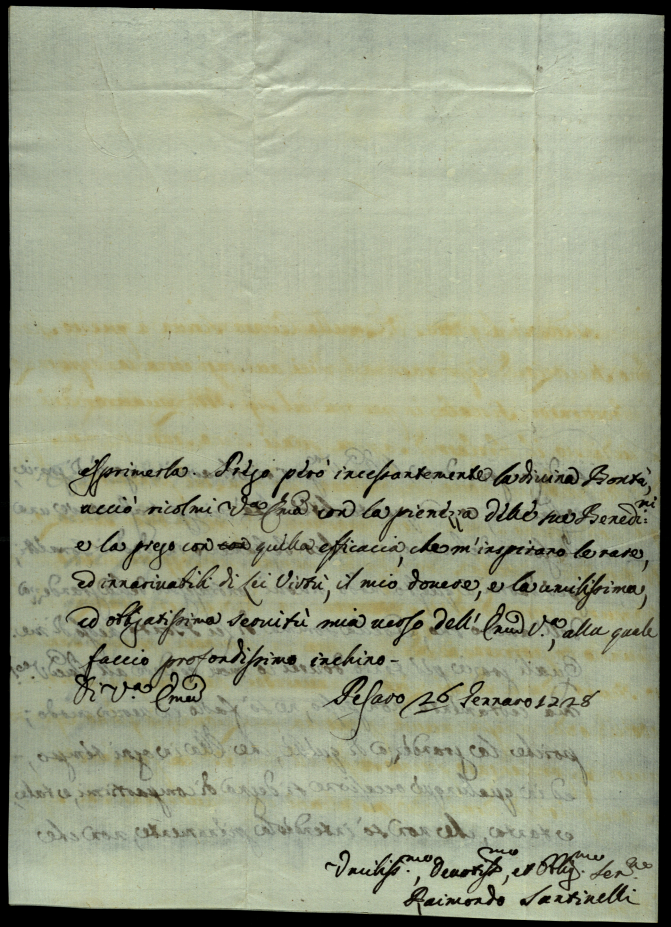 esprimerla. Prego però incessantemente la divina Bontà,
acciò ricolmi V.ra Em.a con la pienezza delle sue Benedi:ni
e la prego con quella efficacia, che m'inspirano le rare,
ed innarivabili di Lei Virtù, il mio dovere, e la umilissima,
ed obbligatissima servitù mia verso dell' Em.a V.ra, alla quale
faccio profondissimo inchino-
Di V.ra Em.a Pesaro 26 Gennaro 1728
Umiliss.mo, Devotiss.mo, et Obblig.mo Ser.re
Raimondo Santinelli